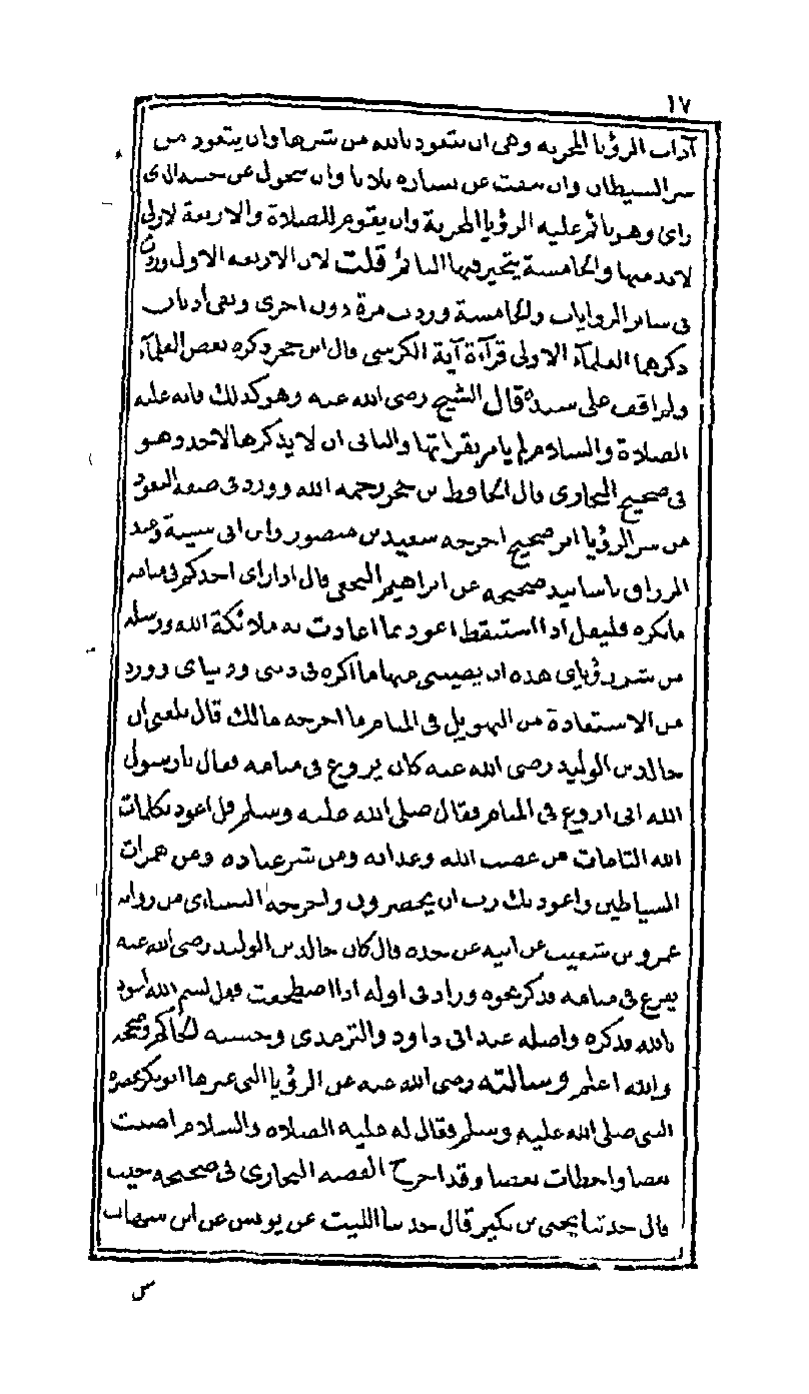 ١٧
آداب الرؤيا المحزنة وهى ان يتعوذ بالله من شرها وان يتعوذ من
شر الشيطان وان ينفث عن يساره ثلاثا وان يتحول عن جنبه الذى
راى وهو نائم عليه الرؤيا المحزنة وان يقوم للصلاة والاربعة الاولى
لابد منها والخامسة يتخير فيها النائم قلت لان الاربعة الاول وردت
فى سائر الروايات والخامسة وردت مرة دون اخرى وبقى أدبان
ذكرهما العلماء الاولى قرآءة آية الكرسى قال ابن حجر ذكره بعض العلمآء
ولم اقف على سنده قال الشيخ رضى الله عنه وهو كذلك فانه عليه
الصلاة والسلام لم يامر بقرائتها والثانى ان لا يذكرها لاحد وهو
فى صحيح البخارى قال الحافظ بن حجر رحمه الله وورد فى صفة التعوذ
من شر الرؤيا اثر صحيح اخرجه سعيد بن منصور وابن ابى شيبة وعبد
الرزاق باسانيد صحيحه عن ابراهيم النخعى قال اذا راى احدكم فى منامه
ما يكره فليقل اذا استيقظ اعوذ بما اعاذت به ملائكة الله ورسله
من شر رؤياى هذه ان يصيبنى منها ما اكره فى دينى ودنياى وورد
من الاستعاذة من التهويل فى المنام ما اخرجه مالك قال بلغنى ان
خالد بن الوليد رضى الله عنه كان يروع فى منامه فقال يا رسول
الله انى اروع فى المنام فقال صلى الله عليه وسلم قل اعوذ بكلمات
الله التامات من غضب الله وعذابه ومن شر عباده ومن همزات
الشياطين واعوذ بك رب ان يحضرون واخرجه النسائى من رواية
عمرو بن شعيب عن ابيه عن جده قال كان خالد بن الوليد رضى الله عنه
يفزع فى منامه فذكر نحوه وزاد فى اوله اذا اضطجعت فقل بسم الله اعوذ
بالله فذكره واصله عند ابى داود والترمذى وحسنه الحاكم وصححه
والله اعلم وسالته رضى الله عنه عن الرؤيا التى عبرها ابو بكر بحضرة
النبى صلى الله عليه وسلم فقال له عليه الصلاة والسلام اصبت
بعضا واخطات بعضا وقد اخرج القصة البخارى فى صحيحه حيث
قال حدثنا يحيى بن بكير قال حدثنا الليث عن يونس عن ابن شهاب